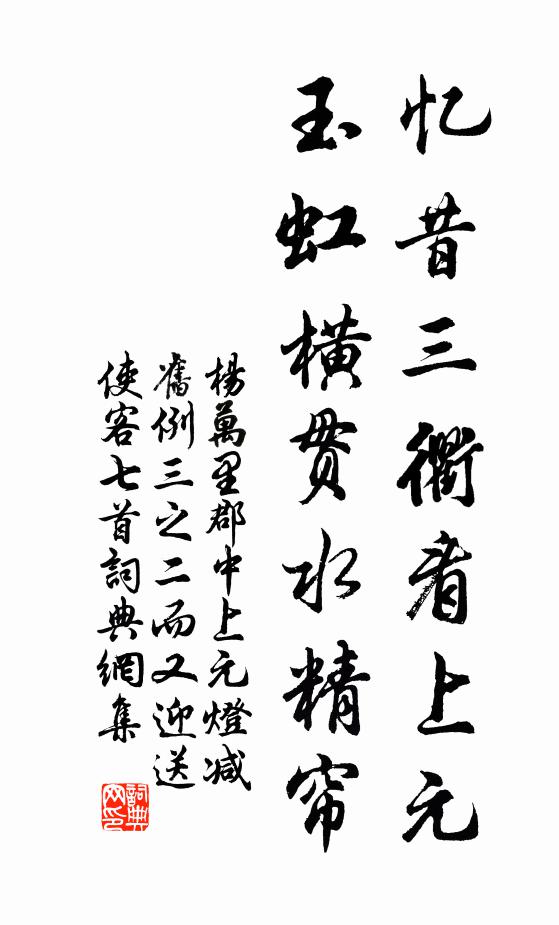 忆昔三衢看上元
玉虹横贯水精帘
楊萬里郡中上元燈减
舊例三之二而又迎送
使客七首詞典網集
詞典網印